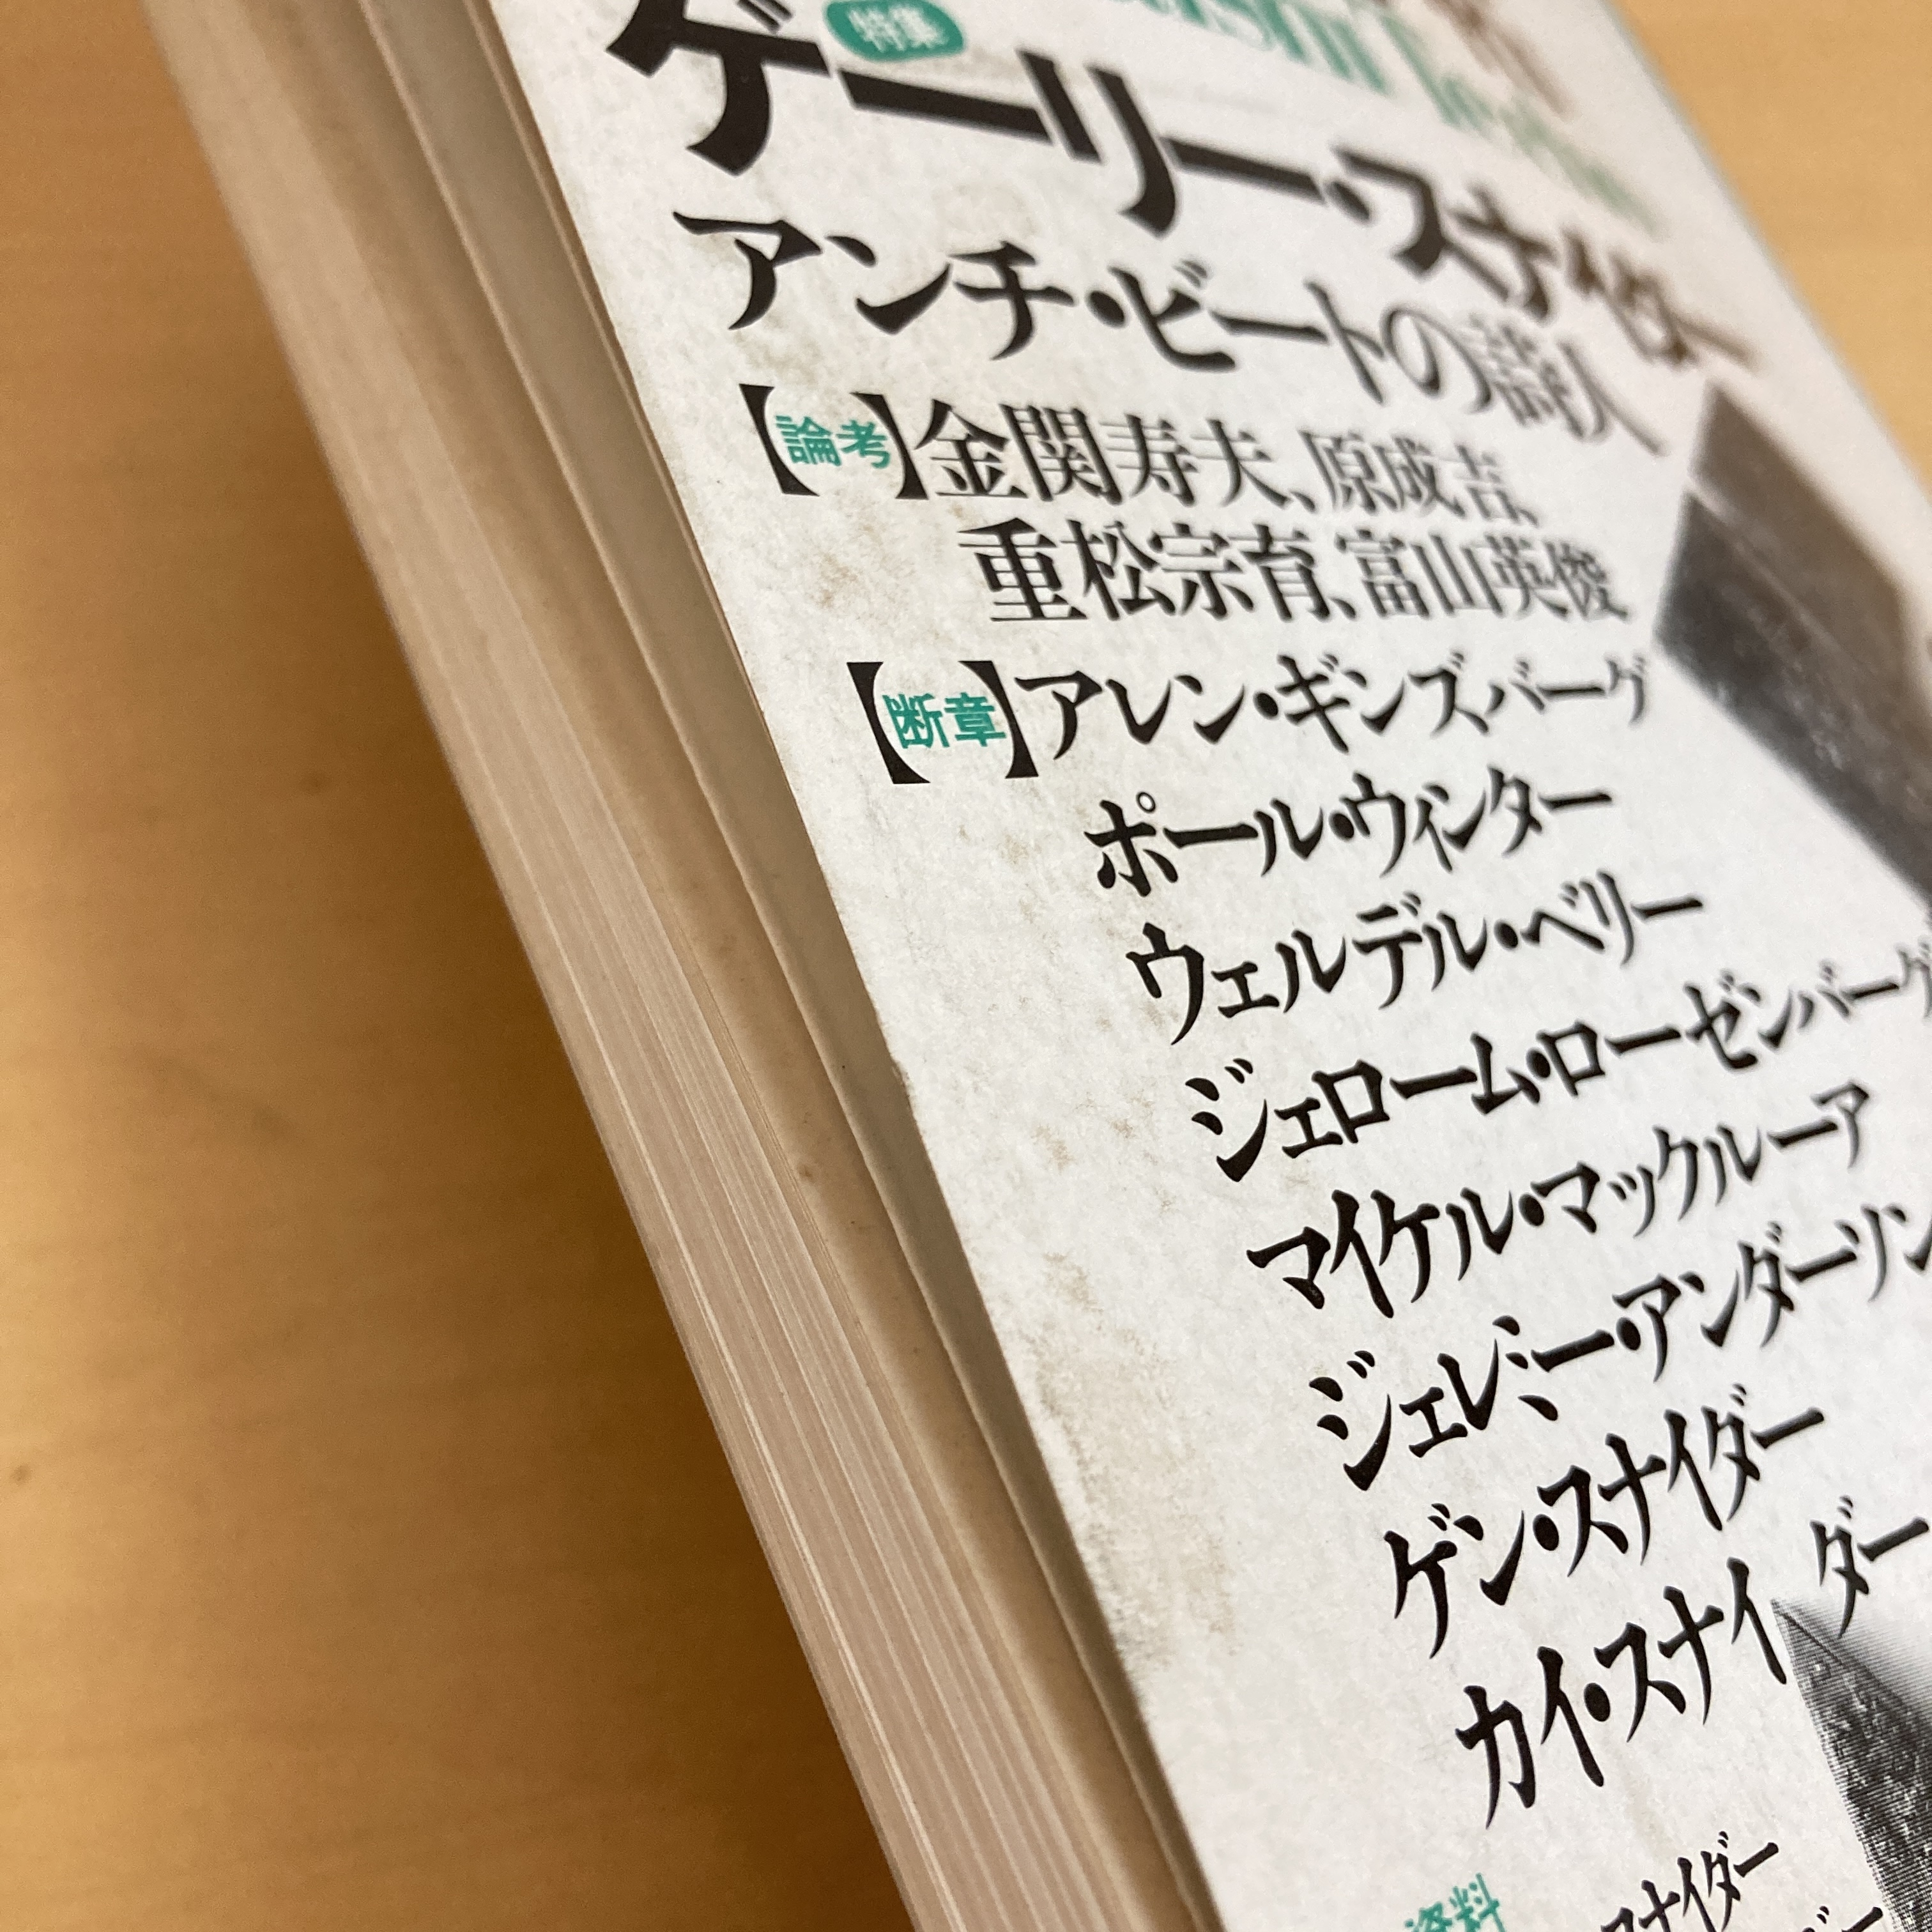 特集
ゲーリー・スナイダー
アンチ・ビートの詩人
【論考】金関寿夫、原成吉、
重松宗育、富山英俊
【断章】アレン・ギンズバーグ
ポール・ウィンター
ウェルデル・ベリー
ジェローム・ローゼンバーグ
マイケル・マックルーア
ジェレミー・アンダーソン
ゲン・スナイダー
カイ・スナイダー
資料
スナイダー